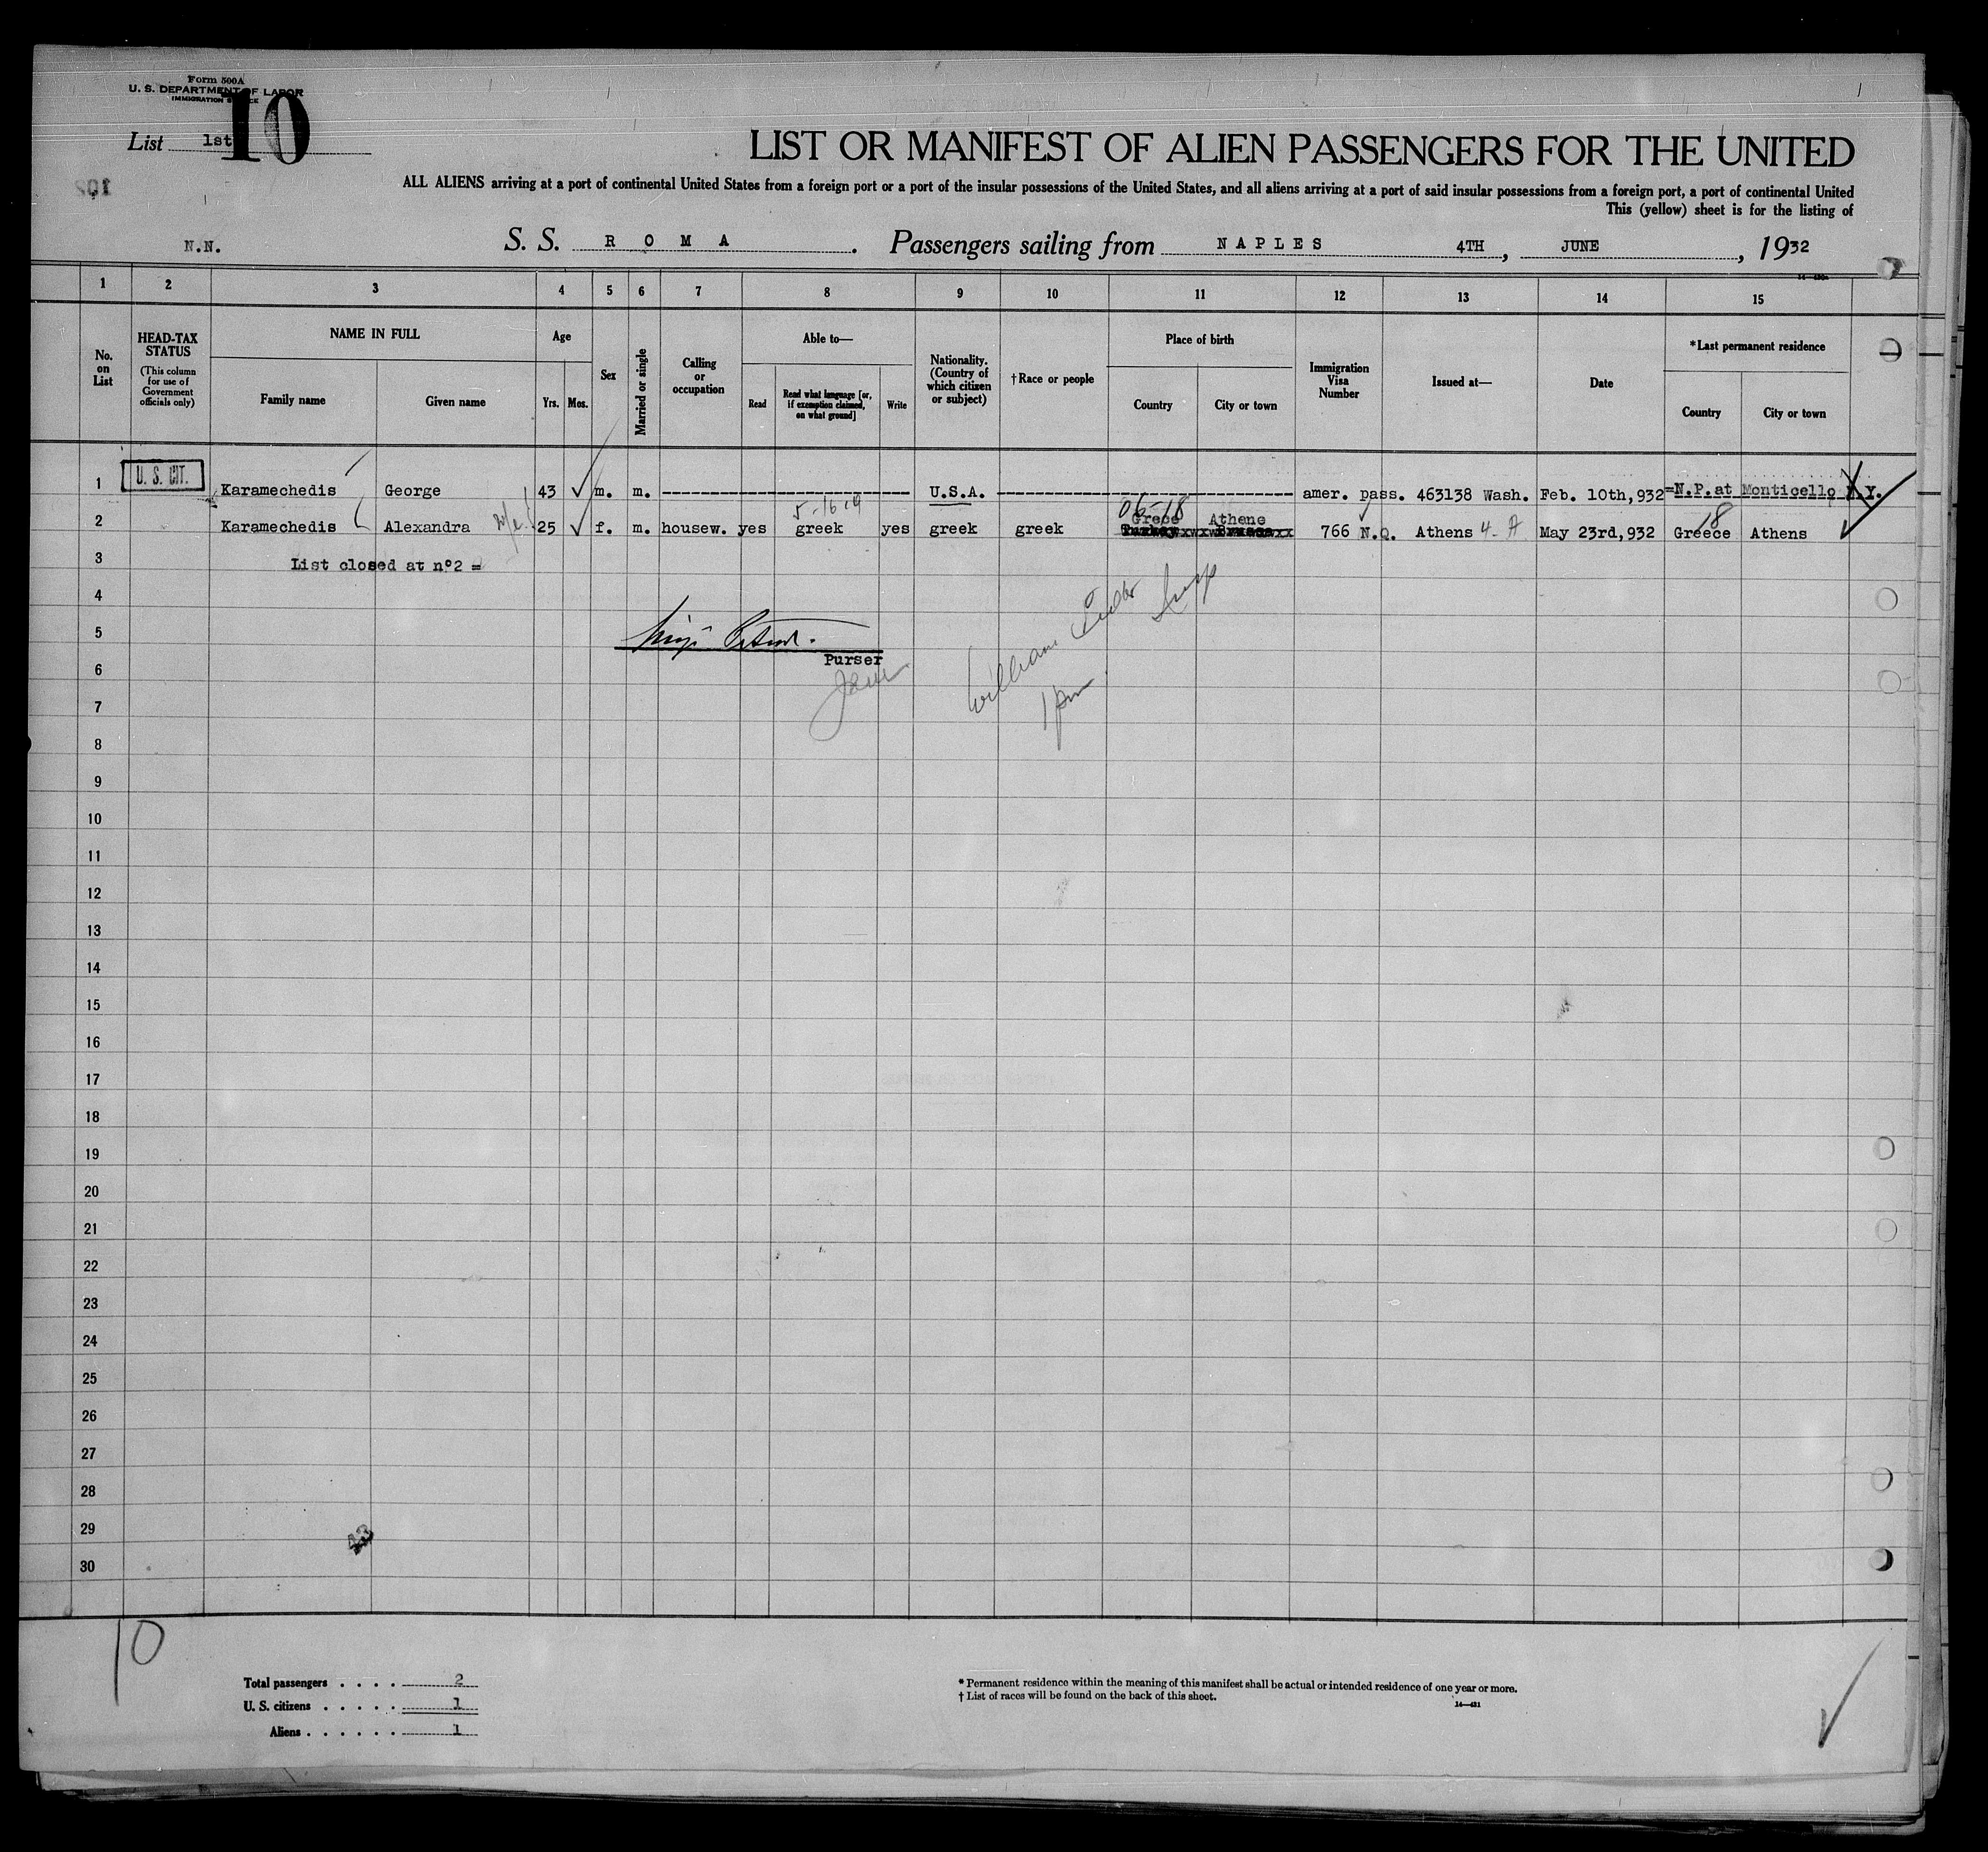 Form 500A
U. S. DEPARTMENT OF LABOR
IMMIGRATION SERVICE
10
List 1st
LIST OR MANIFEST OF ALIEN PASSENGERS FOR THE UNITED
ALL ALIENS arriving at a port of continental United States from a foreign port or a port of the insular possessions of the United States, and all aliens arriving at a port of said insular possessions from a foreign port, a port of continental United
This (yellow) sheet is for the listing of
N.N. S. S. R O M A . Passengers sailing from N A P L E S 4TH , JUNE , 1932
1 2 3 4 5 6 7 8 9 10 11 12 13 14 15
No. on List
HEAD-TAX STATUS
(This column for use of Government officials only)
NAME IN FULL
Family name Given name
Age
Yrs. Mos.
Sex
Married or single
Calling or occupation
Able to—
Read
Read what language [or, if exemption claimed, on what ground]
Write
Nationality. (Country of which citizen or subject)
† Race or people
Place of birth
Country City or town
Immigration Visa Number
Issued at—
Date
* Last permanent residence
Country City or town
1 U. S. CIT. Karamechedis George 43 ✓ m. m. U.S.A. amer. pass. 463138 Wash. Feb. 10th,932 =N.P.at Monticello N.Y.
5-16-19 06-18 18
Grece Athene
2 Karamechedis Alexandra 25 ✓ f. m. housew. yes greek yes greek greek 766 N.Q. Athens 4-A May 23rd,932 Greece Athens
3 List closed at nº2 =
4
5
Purser
6
William
7
1 pm
8
9
10
11
12
13
14
15
16
17
18
19
20
21
22
23
24
25
26
27
28
29
30
10
Total passengers . . . . 2
U. S. citizens . . . . . 1
Aliens . . . . . . 1
* Permanent residence within the meaning of this manifest shall be actual or intended residence of one year or more.
† List of races will be found on the back of this sheet.
14—431